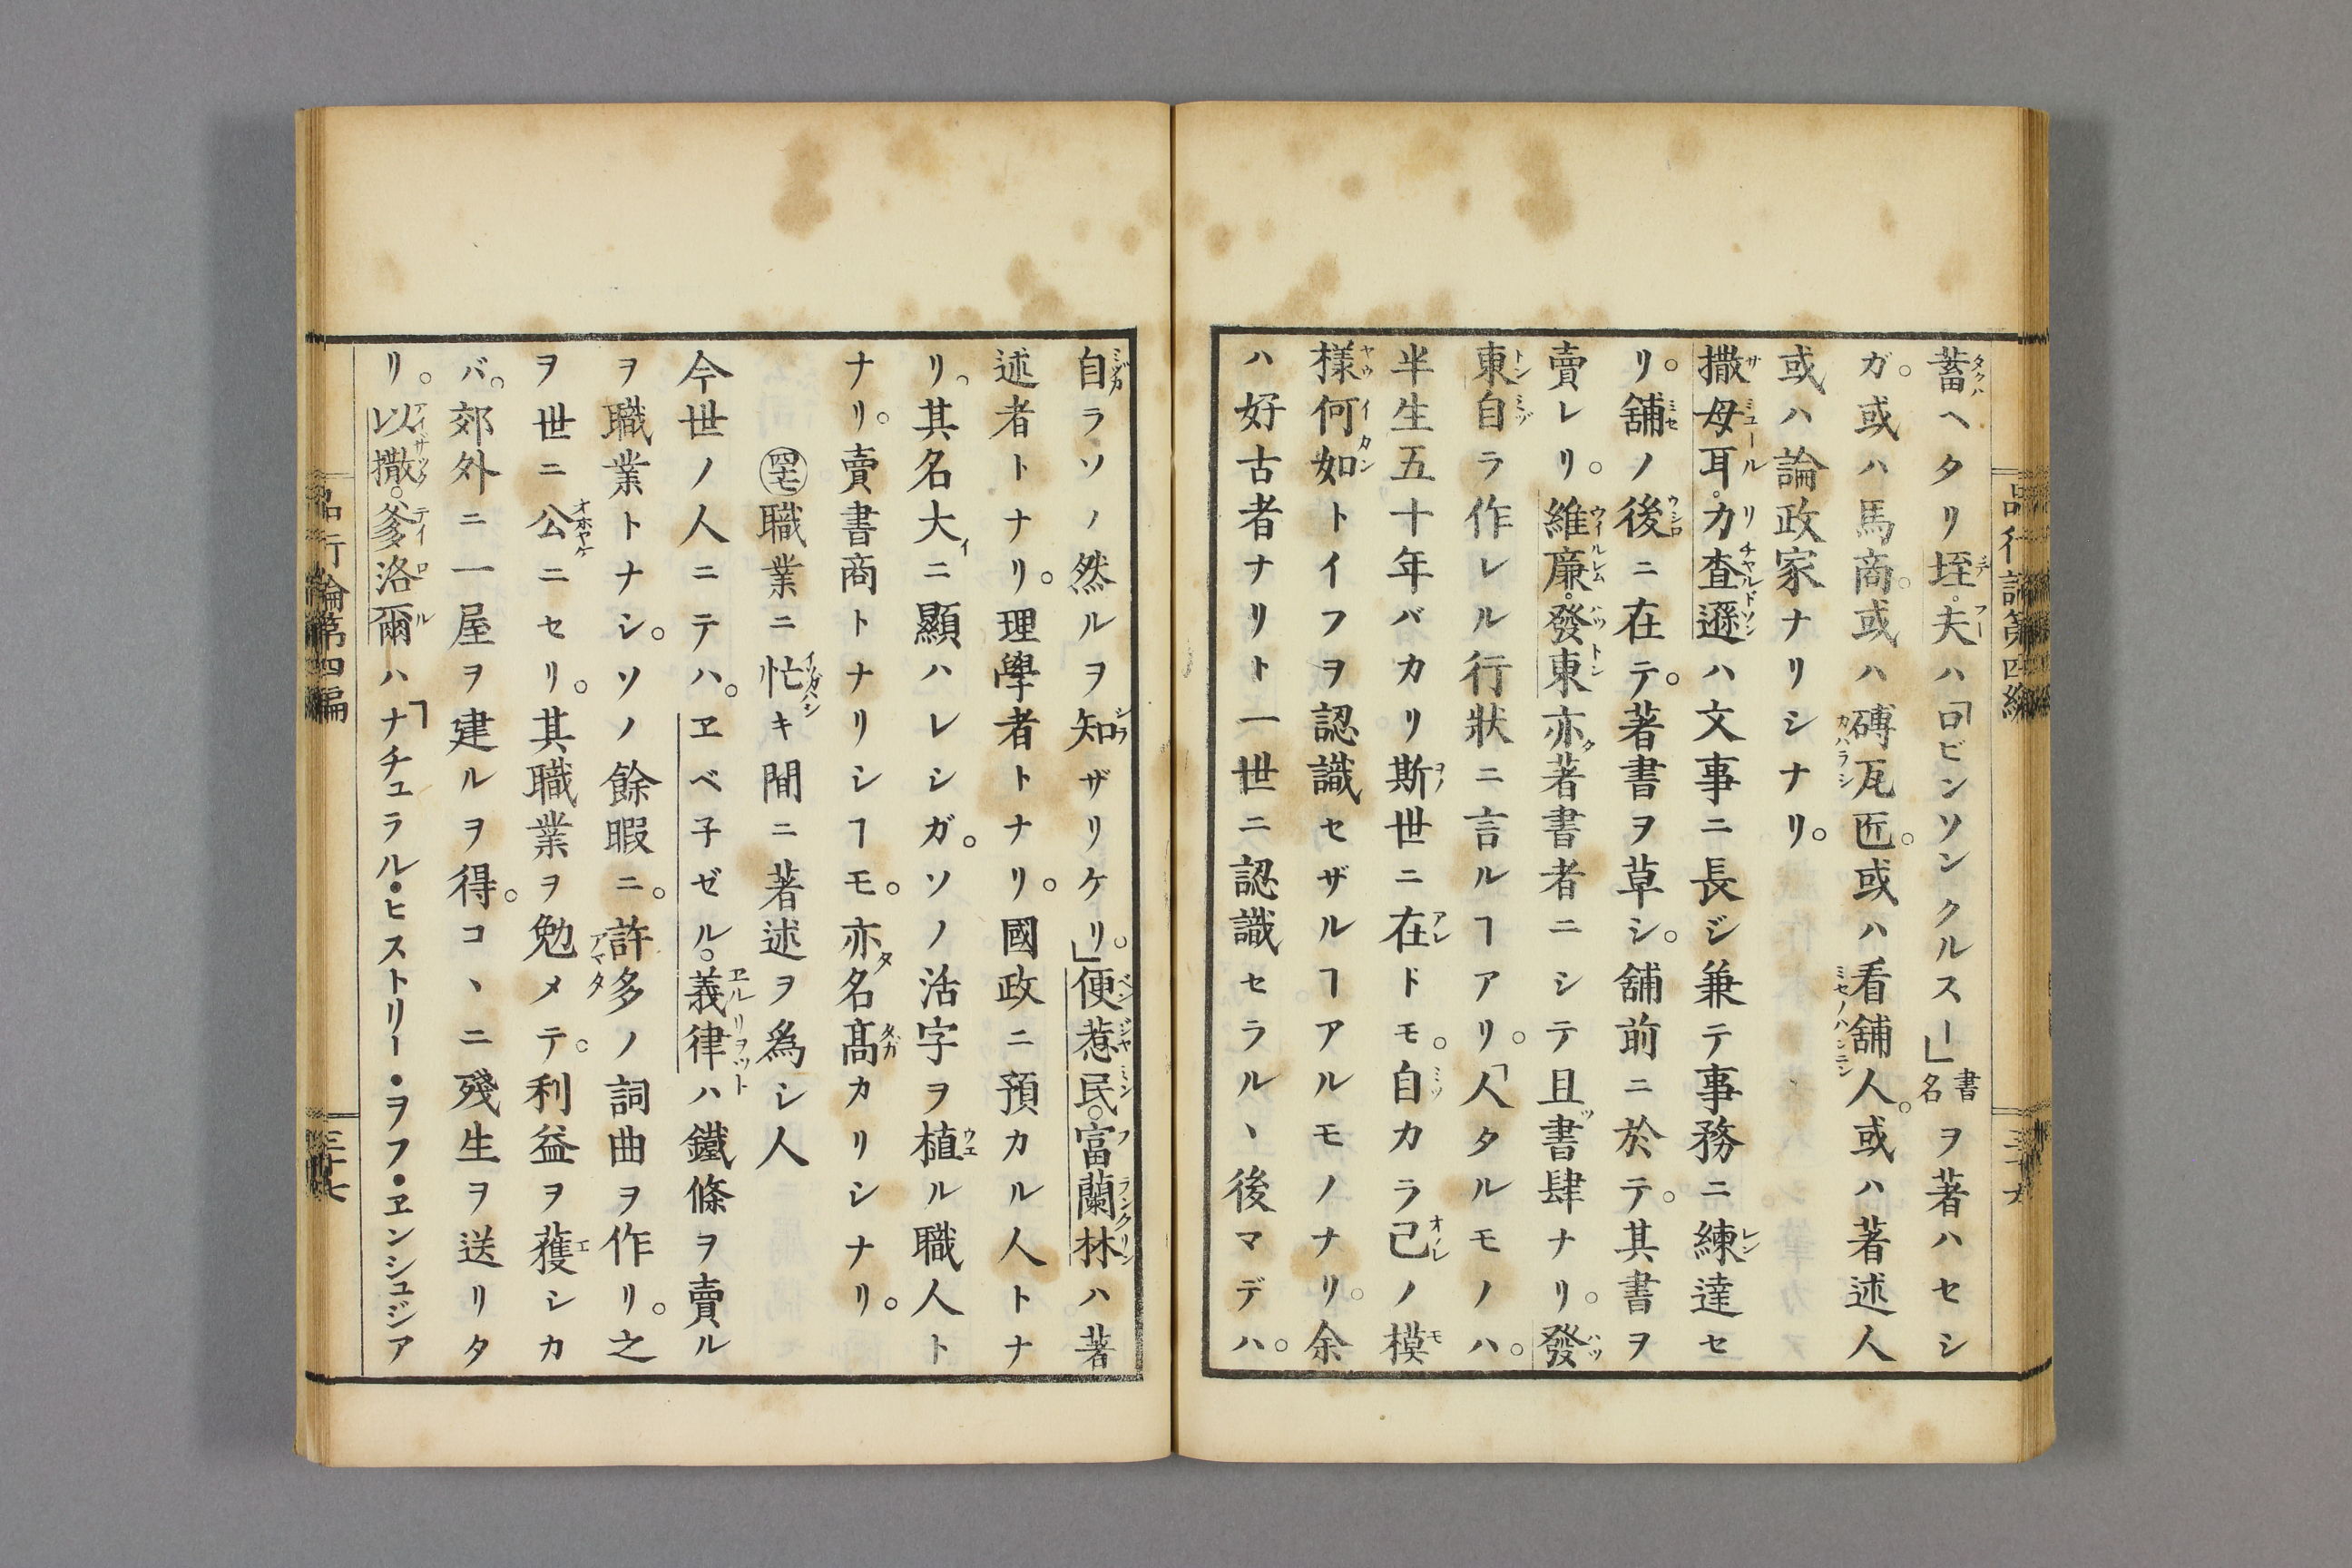 品行論第四編
蓄ヘタリ垤。夫ハ「ロビンソンクルスー」書名ヲ著ハセシ
ガ。或ハ馬商。或ハ磚瓦匠。或ハ看舖人。或ハ著述人
或ハ論政家ナリシナリ。
撒母耳。力査遜ハ文事ニ長ジ兼テ事務ニ練達セ
リ。舖ノ後ニ在テ。著書ヲ草シ。舖前ニ於テ。其書ヲ
賣レリ。維廉。發東亦著書者ニシテ且書肆ナリ。發
東自ラ作レル行狀ニ言ルヿアリ。「人タルモノハ。
半生五十年バカリ斯世ニ在ドモ。自カラ己ノ模
樣何如トイフヲ認識セザルヿアルモノナリ。余
ハ好古者ナリト一世ニ認識セラル、後マデハ。
自ラソノ然ルヲ知ザリケリ。」便惹民。富蘭林ハ著
述者トナリ。理學者トナリ。國政ニ預カル人トナ
リ。其名大ニ顯ハレシガ。ソノ活字ヲ植ル職人ト
ナリ。賣書商トナリシヿモ。亦名髙カリシナリ。
㊃七職業ニ忙キ間ニ著述ヲ爲シ人
今世ノ人ニテハ。ヱベ子ゼル。義律ハ鐵條ヲ賣ル
ヲ職業トナシ。ソノ餘暇ニ。許多ノ詞曲ヲ作リ。之
ヲ世ニ公ニセリ。其職業ヲ勉メテ。利益ヲ獲シカ
バ。郊外ニ一屋ヲ建ルヲ得。コ、ニ殘生ヲ送リタ
リ。以撒。爹洛爾ハ「ナチュラル・ヒストリー・ヲフ・ヱンシュジア
品行論第四編
三十七